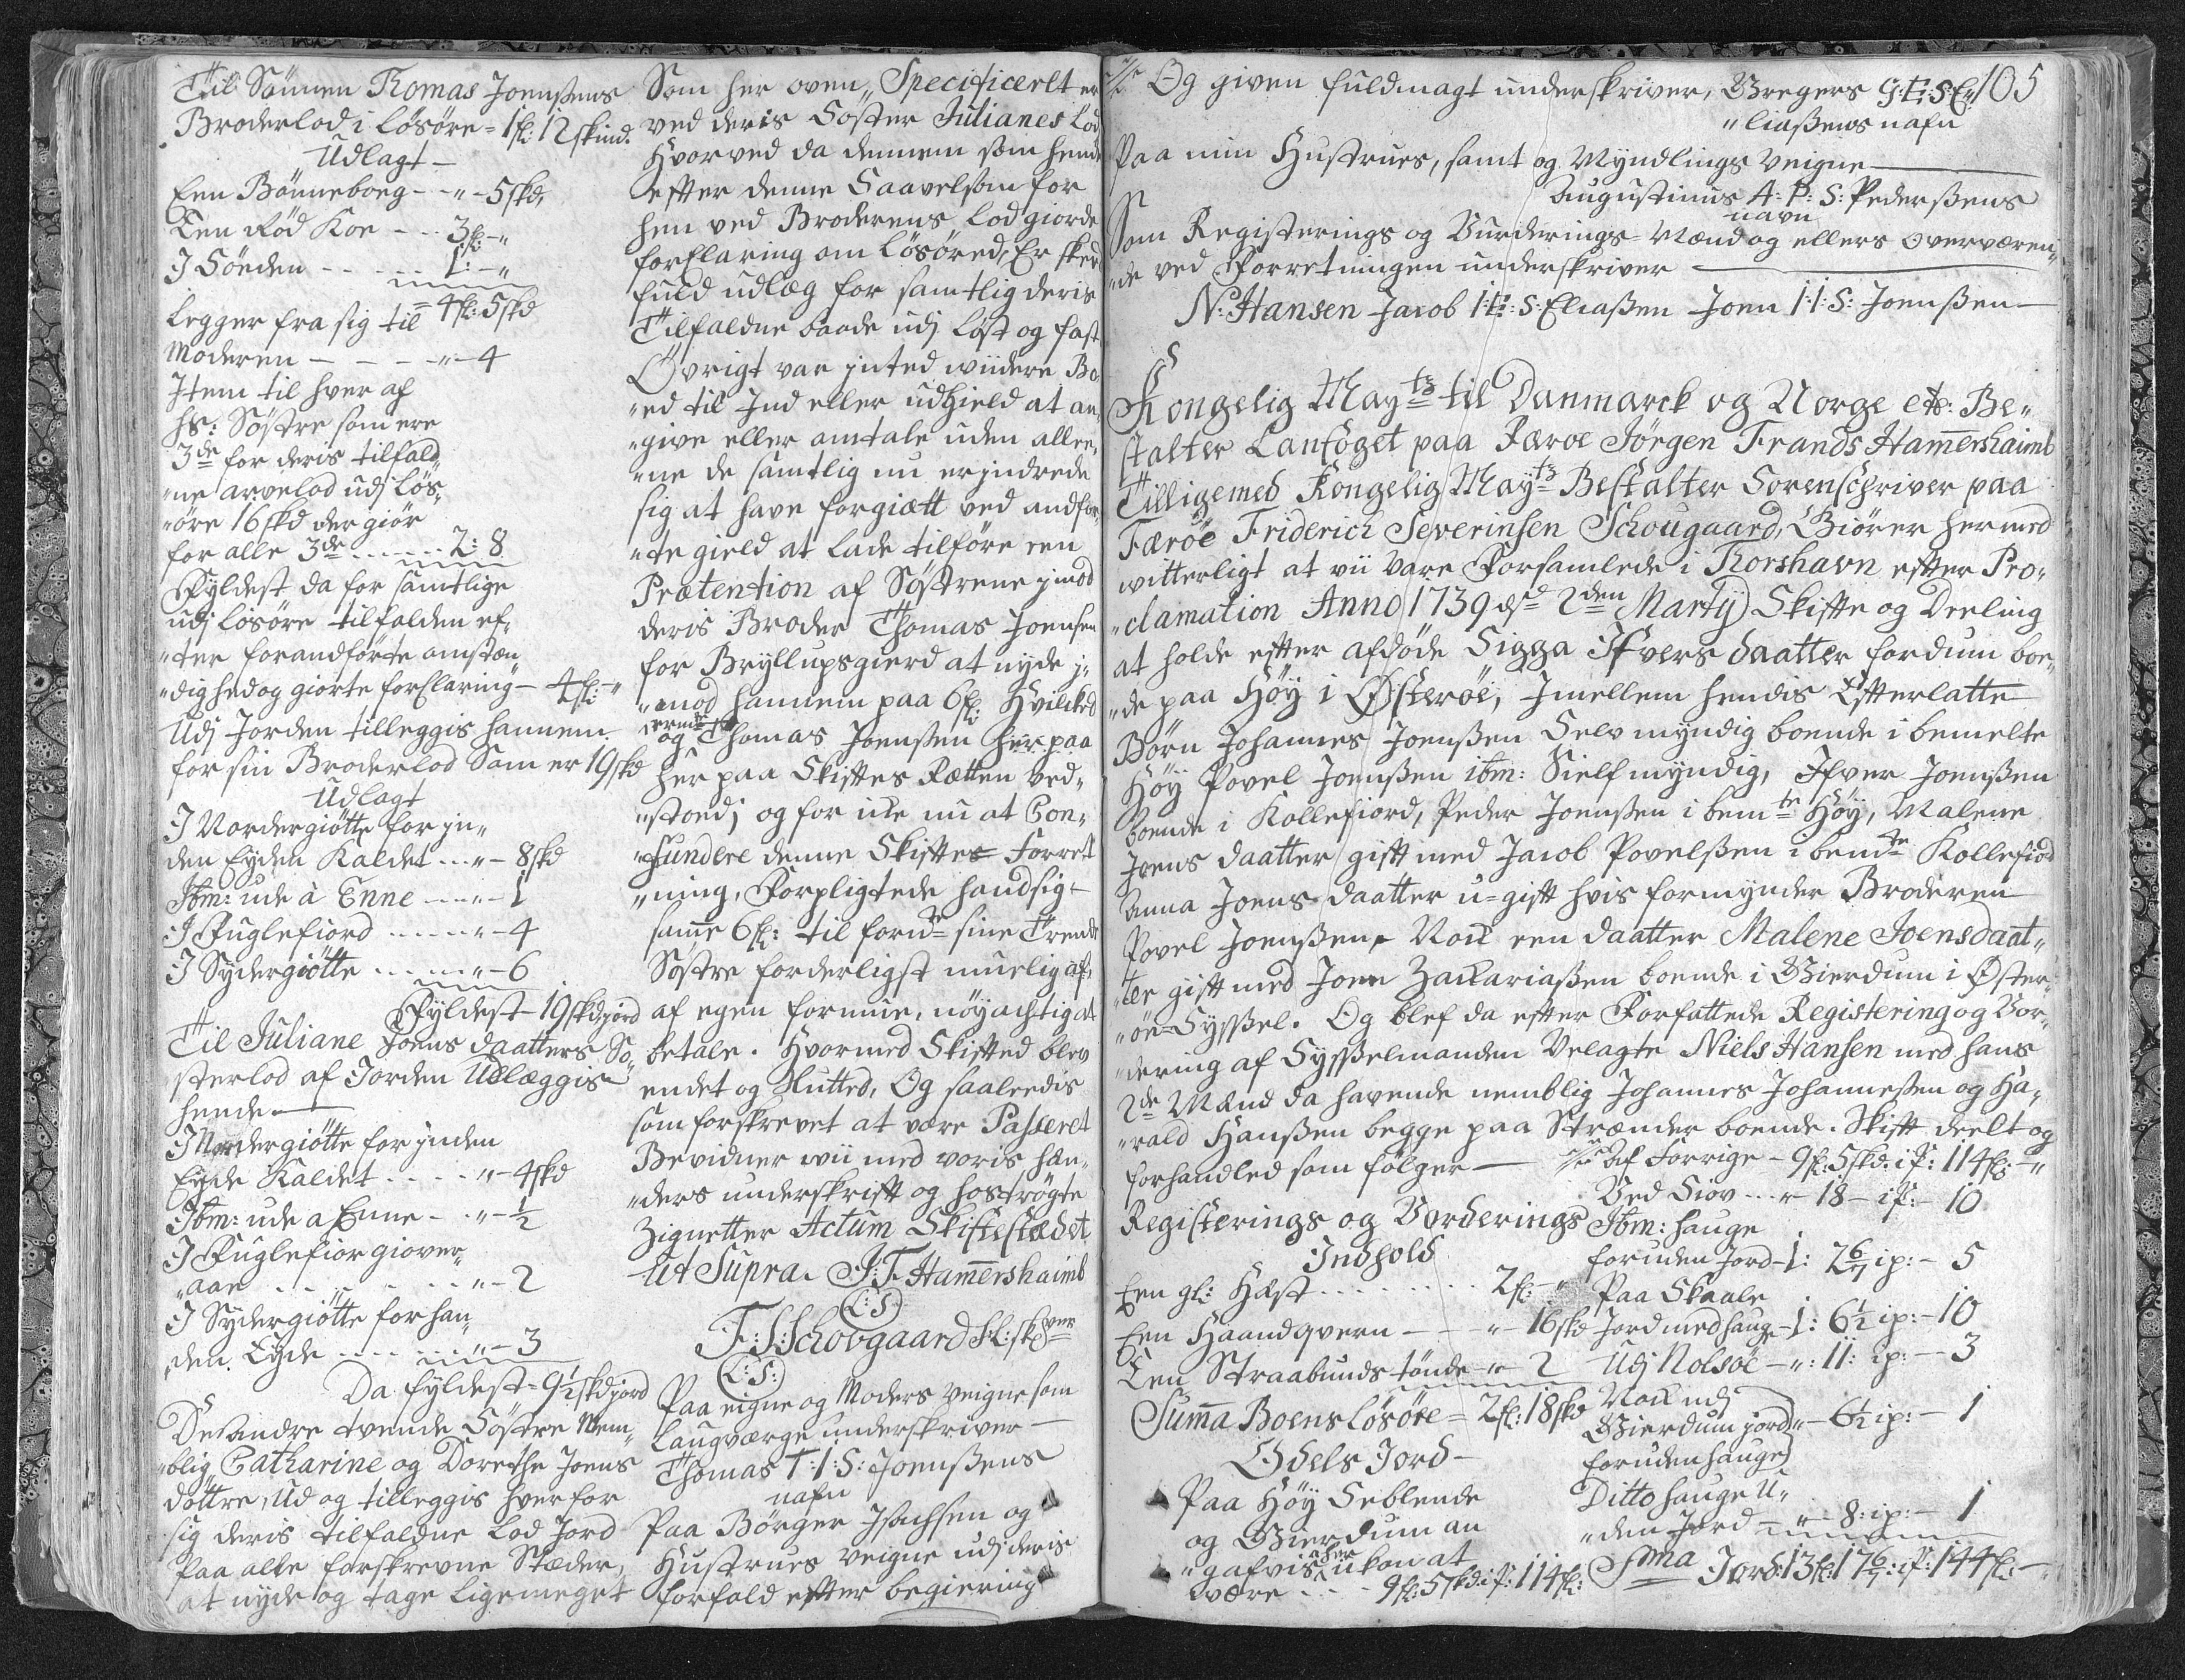 Til Sönnen Thomas Joensens
Broderlod i løsøre = 1 fl: 12 skind.
Udlagt
Een Bönneboeg - - " - 5 skd,
Een Rød Koe - - 3 fl: - "
I Söeden - - - - 1: - "
= 4 fl: 5 skd
Legger fra sig til
Moderen - - - - " - 4
Item til hver af
hs: Søstre som ere
3de for deris tilfald„
„ne arvelod udj løs„
„øre 16 skd der giør
for alle 3de - - - - 2: 8
Fyldest da for samtlige
udj løsøre tilfalden ef„
„ter forandførte omstæn„
„dighed og giorte forklaring - 4 fl: - "
Udj Jorden tilleggis hannem
for sin Broderlod Som er 19 skd
Udlagt
I Nordergiøtte for jn„
den Eyden Kaldet - - " - 8 skd
Ibm: ude à Enne - - " - 1
I Fuglefiord - - - " - 4
I Sydergiøtte - - - " - 6
Fyldest - 19 skd jord
Til Juliane Joens daatters Sø„
sterlod af Jorden Udlæggis
hende
I Nordergiøtte for jnden
Eyde Kaldet - - - " - 4 skd
Ibm: ude a Enne - - " - ½
I Fuglefior giover„
„aae - - - - " - 2
I Sydergiøtte for han„
„den Eyde - - - " - 3
Da fyldest - 9½ skd jord
De andre tvende Søstre Nem„
„blig Catharine og Dorethe Joens
döttre, Ud og tilleggis hver for
sig deris tilfaldne Lod Jord
paa alle forskrevne Stæder,
at nyde og tage ligemeget
Som her oven„ Specificerlt er
ved deris Söster Julianes Lod
Hvorved da dennem som hende
efter denne Saavelsom for
hen ved Broderens lod giorde
forklaring om løsøred, Er skeed
fuld udlæg for samtlig deris
Tilfaldne baade udj løst og fast
Övrigt var jnted wiidere Bo„
„ed til Ind eller udgield at an„
„give eller omtale uden allee„
„ne de samtlig nu erjndrede
sig at have forgiætt ved andfør„
„te gield at lade tilføre een
Prætention af Søstrene jmod
deris Broder Thomas Joensen
for Bryllupsgierd at nyde j„
„mod hannem paa 6 fl: Hvilcked
og Thomas Joensen her paa
her paa Skiftes Rætten ved„
„stoed; og for icke nu at Con„
„fundere denne Skiftes Forret
„ning, Forpligtede hand sig
samme 6 fl: til forn:te sine Trende
Søstre forderligst muelig af,
af egen formue, nøyachtig at
betale. Hvormed Skifted blev
endet og Sluttet, Og saaledis
som forskrevet at være Passeret
Bevidner wii med voris hæn„
„ders underskrift og hoströgte
Zignetter Actum Skiftestædet
Ut Supra. J: F: Hamershaimb
(L:S)
F: S: Schovgaard S:L: sk:ver
(L:S:)
Paa eigne og Moders Veigne som
Laugværge underskriver
Thomas T:I:S: Joensens
nafn
Paa Börger Isachsen og
Hustrues Veigne udj deris
forfald efter begiering
Og given fuldmagt underskriver, Gregers G:E:S: E„ 105
„liasens nafn
Paa min Hustrues, samt og Myndlings Veigne
Augustinus A: P: S: Pedersens
navn
Som Registerings og Vurderings-Mænd og ellers Overværen„
„de ved Forretningen underskriver
N: Hansen Jacob I:E:S: Eliasen Joen I:I:S: Joensen
Kongelig Mayts til Danmarck og Norge etc: Be„
stalter Lanfoget paa Færoe Jörgen Frands Hamershaimb
Tilligemed Kongelig Mayts Bestalter Sorenschriver paa
Færöe Friderich Severinsen Schougaard, Giörer hermed
witterligt at wii Vare Forsamlede i Thorshavn efter Pro„
„clamation Anno 1739 dsd 2den Martij Skifte og Deeling
at holde efter afdøde Sigga Ifvers daatter fordum boe„
„de paa Höy i Østeröe, Jmellem hendis Efterlatte
Börn Johannes Joensen Selv myndig boende i bemelte
Höy Povel Joensen ibm: Sielf myndig, Ifver Joensen
boende i Kollefiord, Peder Joensen i bem:te Höy, Malene
Joens daatter gift med Jacob Povelsen i bem:te Kollefiord
Anna Joens daatter u-gift hvis formynder Broderen
Povel Joensen, Nock een daatter Malene Joensdaat„
„ter gift med Joen Zachariasen boende i Gierdum i Øster„
„öe Sysssel. Og blef da efter Forfattede Registering og Vur„
„dering af Sysselmanden Velagte Niels Hansen med hans
2de Mænd da havende nemblig Johannes Johannesen og Ha„
„rald Hansen begge paa Strænder boende. Skift deelt og
forhandled som følger
Registerings og Vurderings
Indhold
Een gl: Hæst - - - - 2 fl: - "
Een Haandqvern - - " - 16 skd
Een Straabunds tønde " - 2
Summa Boens løsøre = 2 fl: 18 skd
Odels Jord
Paa Höy Seblende
og Gierdum an
„gafvis eher kon at
være - - - 9 fl: 5 skd: is: 114 fl:
Af Forrige - 9 fl: 5 skd. is: 114 fl: - "
Ved Siov - - " - 18 - is: - 10
Ibm: hauge
foruden Jord - 1: 2 6/7 ip: - 5
Paa Skaale
Jord med hauge - 1: 6½ ip: - 10
Udj Nolsöe - ": 11: ip: - 3
Nock udj
Gierdum jord " - 6½ ip: - 1
foruden hauge
Ditto hauge U„
„den Jord - " - 8: ip: - 1
Sma Jord: 13 fl: 17 6/7: is: 144 fl: - "